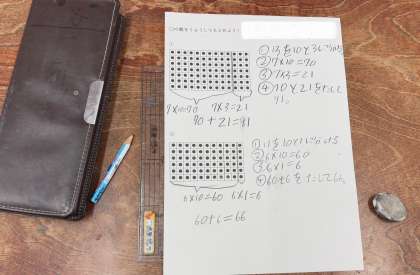 ①13を10と3に分ける
②7×10=70
③7×3=21
④70と21をたして
91。
7×10=70 7×3=21
70+21=91
①11を10と1に分ける
②6×10=60
③6×1=6
④60と6をたして66。
6×10=60 6×1=6
60+6=66